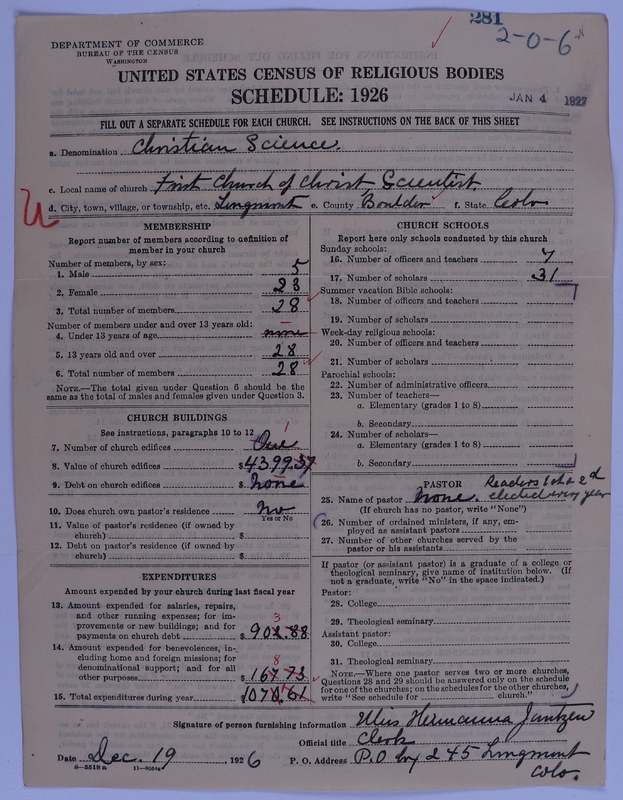 281
2-0-6
DEPARTMENT OF COMMERCE
BUREAU OF THE CENSUS
WASHINGTON
UNITED STATES CENSUS OF RELIGIOUS BODIES
SCHEDULE: 1926
JAN 4 1927
FILL OUT A SEPARATE SCHEDULE FOR EACH CHURCH. SEE INSTRUCTIONS ON THE BACK OF THIS SHEET
a. Denomination Christian Science.
c. Local name of church First Church of Christ, Scientist,
d. City, town, village, or township, etc. Longmont e. County Boulder f. State Colo
MEMBERSHIP
Report number of members according to definition of
member in your church
Number of members, by sex:
1. Male 5
2. Female 23
3. Total number of members 28
Number of members under and over 13 years old:
4. Under 13 years of age none
5. 13 years old and over 28
6. Total number of members 28
NOTE.—The total given under Question 6 should be
the same as the total of males and females given under Question 3.
CHURCH BUILDINGS
See instructions, paragraphs 10 to 12
7. Number of church edifices One 1
8. Value of church edifices $4399.57
9. Debt on church edifices $ none
10. Does church own pastor's residence No
Yes or No
11. Value of pastor's residence (if owned by
church) $
12. Debt on pastor's residence (if owned by
church) $
EXPENDITURES
Amount expended by your church during last fiscal year
13. Amount expended for salaries, repairs,
and other running expenses; for im-
provements or new buildings; and for
payments on church debt $902.88
3
14. Amount expended for benevolences, in-
cluding home and foreign missions; for
denominational support; and for all
other purposes $167.73
8
15. Total expenditures during year $1070.61
CHURCH SCHOOLS
Report here only schools conducted by this church
Sunday schools:
16. Number of officers and teachers 7
17. Number of scholars 31
Summer vacation Bible schools:
18. Number of officers and teachers
19. Number of scholars
Week-day religious schools:
20. Number of officers and teachers
21. Number of scholars
Parochial schools:
22. Number of administrative officers
23. Number of teachers—
a. Elementary (grades 1 to 8)
b. Secondary
24. Number of scholars—
a. Elementary (grades 1 to 8)
b. Secondary
PASTOR Readers 1st & 2d
25. Name of pastor None. elected every year
(If church has no pastor, write "None")
26. Number of ordained ministers, if any, em-
ployed as assistant pastors
27. Number of other churches served by the
pastor or his assistants
If pastor (or assistant pastor) is a graduate of a college or
theological seminary, give name of institution below. (If
not a graduate, write "No" in the space indicated.)
Pastor:
28. College
29. Theological seminary
Assistant pastor:
30. College
31. Theological seminary
NOTE.—Where one pastor serves two or more churches,
Questions 28 and 29 should be answered only on the schedule
for one of the churches; on the schedules for the other churches,
write "See schedule for church."
Signature of person furnishing information Miss Hermanna Jantzen
Official title Clerk
Date Dec. 19, 1926 P. O. Address P.O box 245 Longmont
Colo.
8—5519a 11—9051a